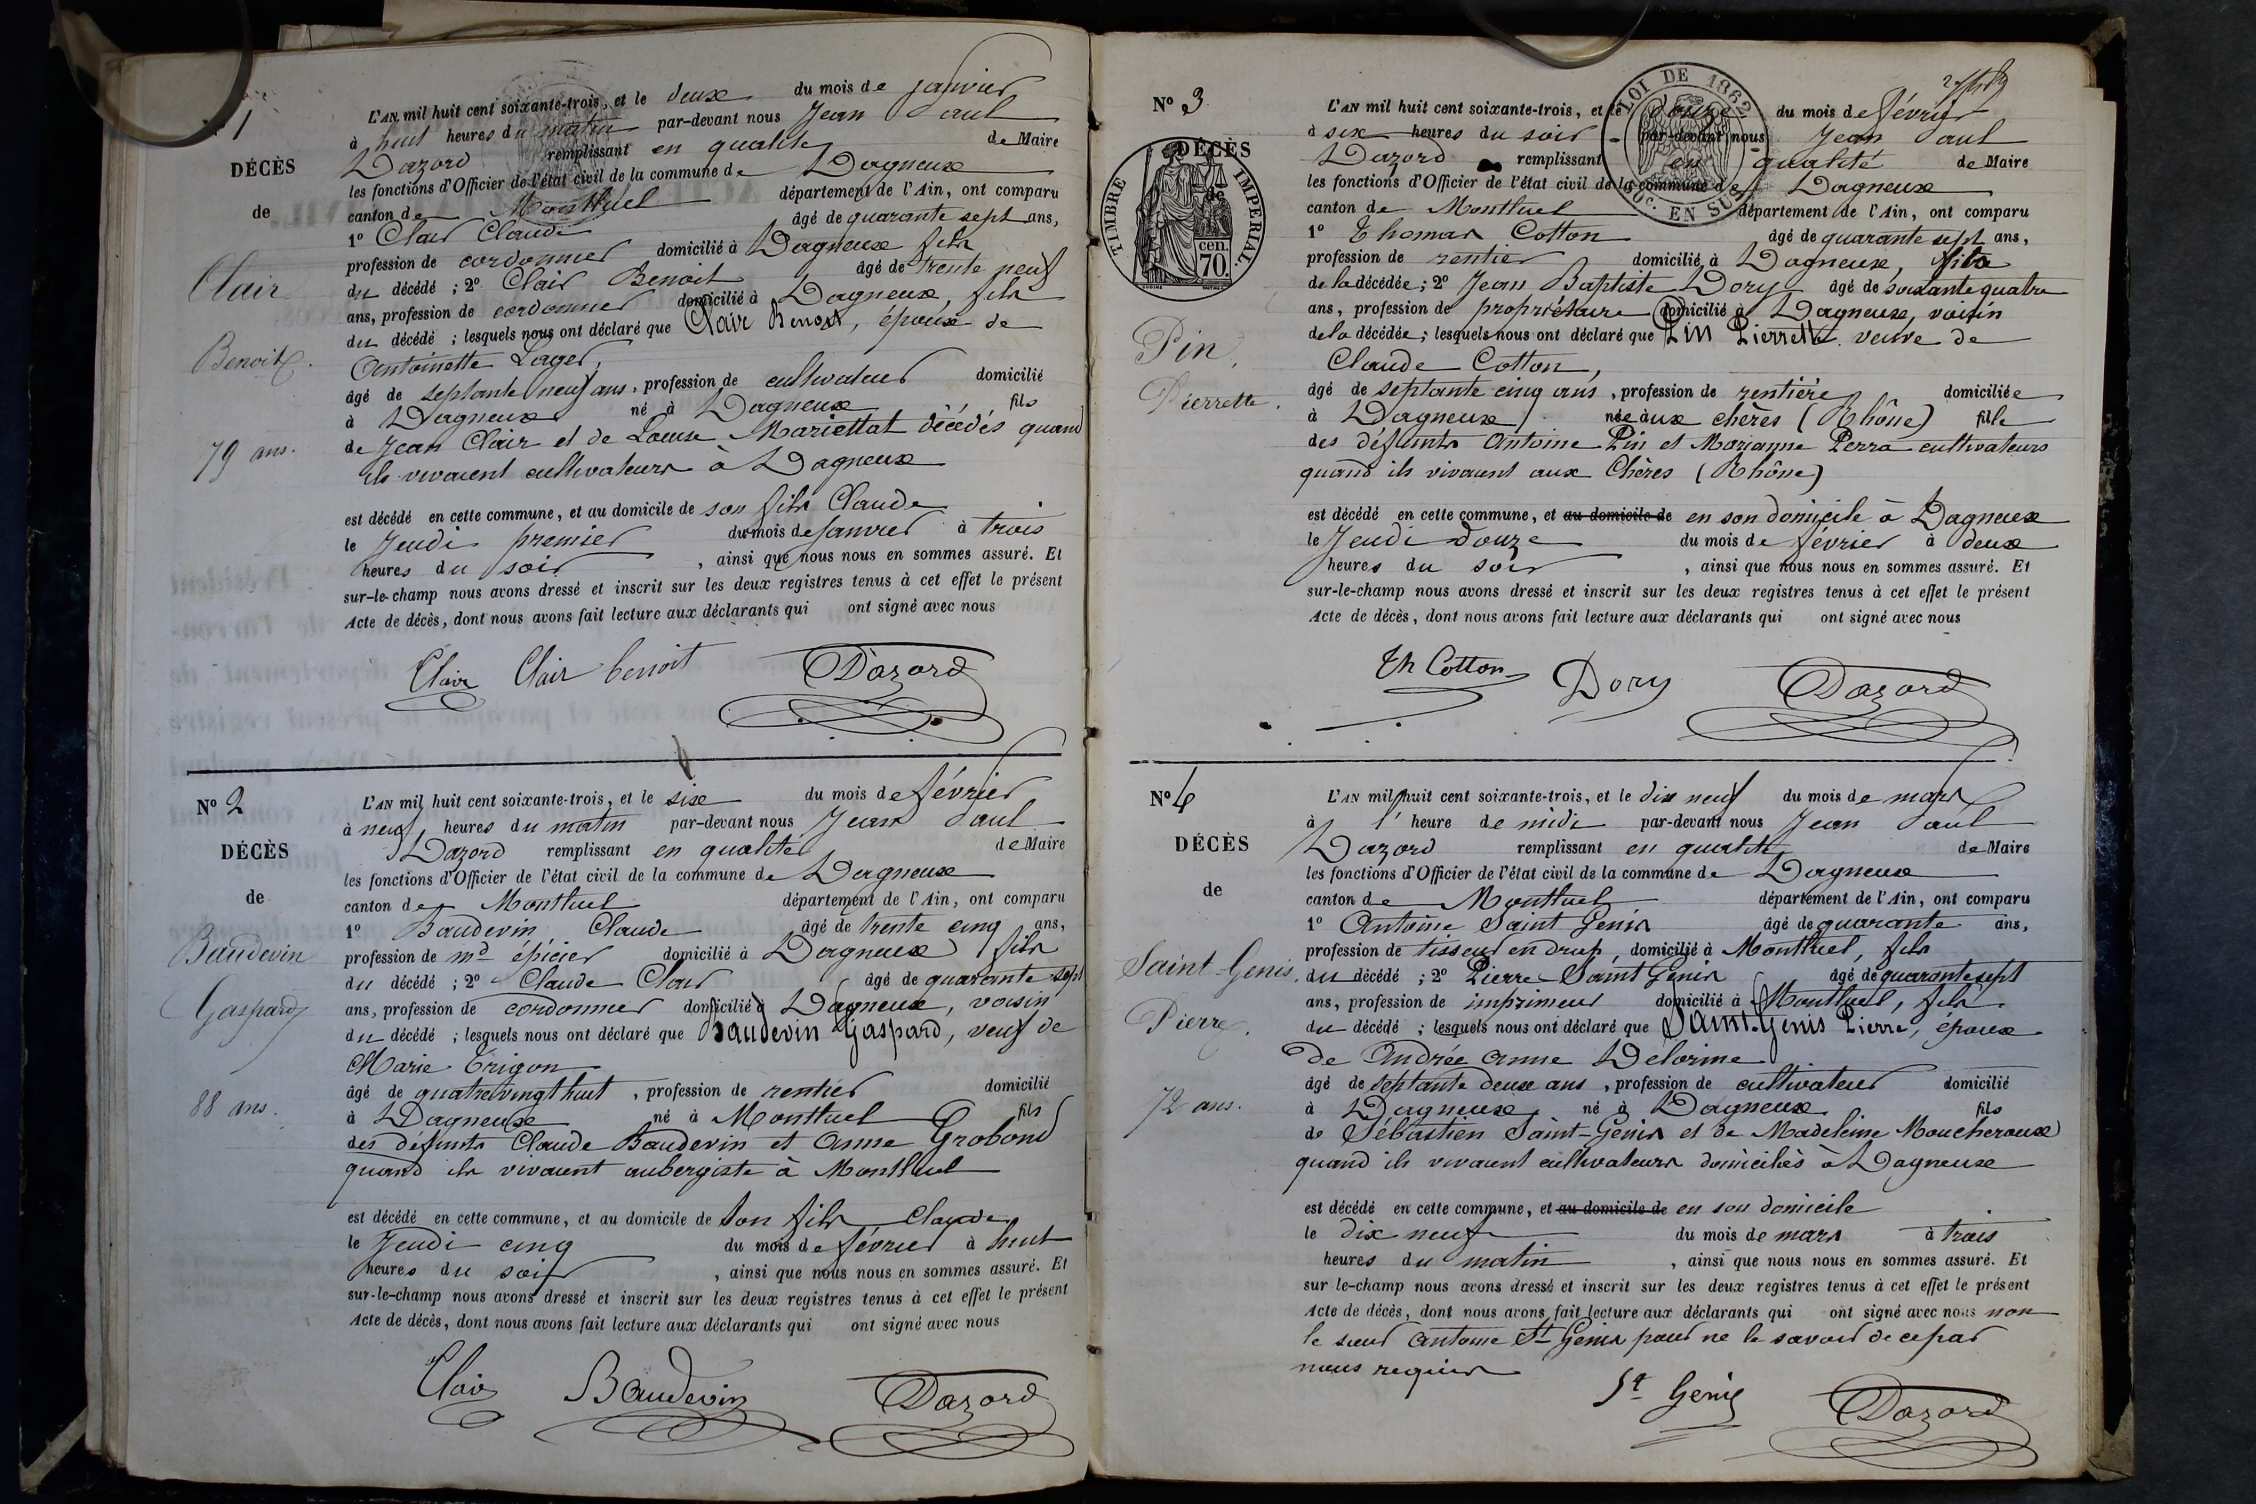 1
DÉCÈS
de
Clair
Benoit
79 ans.
L'AN mil huit cent soixante-trois, et le deux du mois de janvier
à huit heures du matin par-devant nous Jean Paul
Dazord remplissant en qualité de Maire
les fonctions d'Officier de l'état civil de la commune de Dagneux
canton de Montluel département de l'Ain, ont comparu
1º Clair Claude âgé de quarante sept ans,
profession de cordonnier domicilié à Dagneux fils
du décédé ; 2º Clair Benoit âgé de trente neuf
ans, profession de cordonnier domicilié à Dagneux, fils
du décédé ; lesquels nous ont déclaré que Clair Benoit, époux de
Antoinette Lager,
âgé de septante neuf ans, profession de cultivateur domicilié
à Dagneux né à Dagneux fils
de Jean Clair et de Louise Mariettat décédés quand
ils vivaient cultivateurs à Dagneux
est décédé en cette commune, et au domicile de son fils Claude
le Jeudi premier du mois de Janvier à trois
heures du soir, ainsi que nous nous en sommes assuré. Et
sur-le-champ nous avons dressé et inscrit sur les deux registres tenus à cet effet le présent
Acte de décès, dont nous avons fait lecture aux déclarants qui ont signé avec nous
Clair Clair benoit Dazord
Nº 2
DÉCÈS
de
Baudevin
Gaspard
88 ans.
L'AN mil huit cent soixante-trois, et le six du mois de février
à neuf heures du matin par-devant nous Jean Paul
Dazord remplissant en qualité de Maire
les fonctions d'Officier de l'état civil de la commune de Dagneux
canton de Montluel département de l'Ain, ont comparu
1º Baudevin Claude âgé de trente cinq ans,
profession de md épicier domicilié à Dagneux fils
du décédé ; 2º Claude Clair âgé de quarante sept
ans, profession de cordonnier domicilié à Dagneux, voisin
du décédé ; lesquels nous ont déclaré que Baudevin Gaspard, veuf de
Marie Trigon
âgé de quatrevingt huit, profession de rentier domicilié
à Dagneux né à Montluel fils
des défunts Claude Baudevin et Anne Grobond
quand ils vivaient aubergiste à Montluel
est décédé en cette commune, et au domicile de son fils Claude
le Jeudi cinq du mois de février à huit
heures du soir, ainsi que nous nous en sommes assuré. Et
sur-le-champ nous avons dressé et inscrit sur les deux registres tenus à cet effet le présent
Acte de décès, dont nous avons fait lecture aux déclarants qui ont signé avec nous
Clair Baudevin Dazord
Nº 3
DÉCÈS
TIMBRE IMPÉRIAL.
cen.
70.
LOI DE 1862
EN SUS
Pin,
Pierrette.
L'AN mil huit cent soixante-trois, et le douze du mois de février
à six heures du soir par-devant nous Jean Paul
Dazord remplissant en qualité de Maire
les fonctions d'Officier de l'état civil de la commune de Dagneux
canton de Montluel département de l'Ain, ont comparu
1º Thomas Cotton âgé de quarante sept ans,
profession de rentier domicilié à Dagneux, fils
de la décédée ; 2º Jean Baptiste Dory âgé de soixante quatre
ans, profession de propriétaire domicilié à Dagneux, voisin
de la décédée ; lesquels nous ont déclaré que Pin Pierrette veuve de
Claude Cotton,
âgé de septante cinq ans, profession de rentière domiciliée
à Dagneux, née aux chères (Rhône) fille
des défunts Antoine Pin et Marianne Perra cultivateurs
quand ils vivaient aux Chères (Rhône)
est décédé en cette commune, et au domicile de en son domicile à Dagneux
le Jeudi douze du mois de février à deux
heures du soir, ainsi que nous nous en sommes assuré. Et
sur-le-champ nous avons dressé et inscrit sur les deux registres tenus à cet effet le présent
Acte de décès, dont nous avons fait lecture aux déclarants qui ont signé avec nous
Th Cotton Dory Dazord
Nº 4
DÉCÈS
de
Saint-Genis,
Pierre.
72 ans.
L'AN mil huit cent soixante-trois, et le dix neuf du mois de mars
à l'heure de midi par-devant nous Jean Paul
Dazord remplissant en qualité de Maire
les fonctions d'Officier de l'état civil de la commune de Dagneux
canton de Montluel département de l'Ain, ont comparu
1º Antoine Saint Genis âgé de quarante ans,
profession de tisseur en drap, domicilié à Montluel, fils
du décédé ; 2º Pierre Saint Genis âgé de quarante sept
ans, profession de imprimeur domicilié à Montluel, fils
du décédé ; lesquels nous ont déclaré que Saint-Genis Pierre, époux
de Andrée Anne Délorme
âgé de septante deux ans, profession de cultivateur domicilié
à Dagneux, né à Dagneux fils
de Sébastien Saint-Genis et de Madeleine Moucheroux
quand ils vivaient cultivateurs domiciliés à Dagneux
est décédé en cette commune, et au domicile de en son domicile
le dix neuf du mois de mars à trois
heures du matin, ainsi que nous nous en sommes assuré. Et
sur le-champ nous avons dressé et inscrit sur les deux registres tenus à cet effet le présent
Acte de décès, dont nous avons fait lecture aux déclarants qui ont signé avec nous non
le sieur Antoine St Genis pour ne le savoir de ce par
nous requis
St Genis Dazord